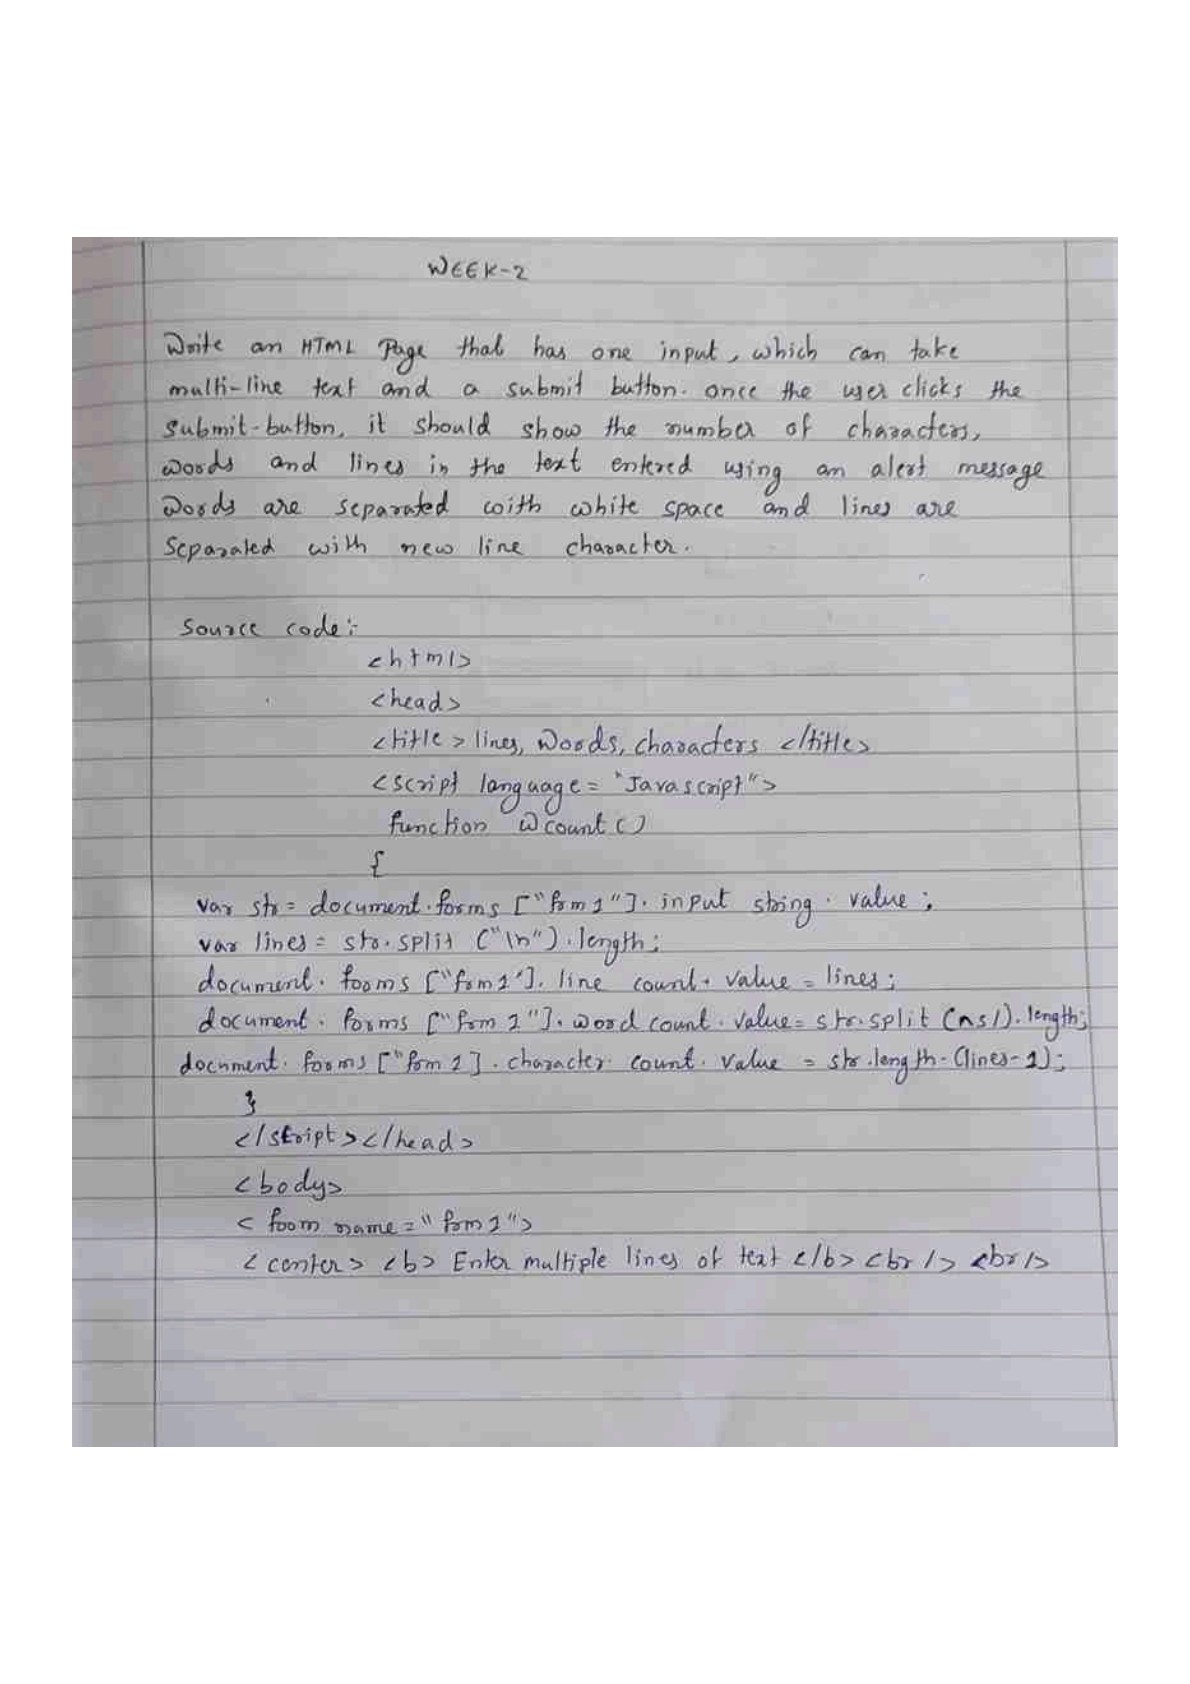 WEEK-2
Write an HTML Page that has one input, which can take
multi-line text and a submit button. once the user clicks the
submit-button, it should show the number of characters,
words and lines in the text entered using an alert message
Words are separated with white space and lines are
Separated with new line character.
Source code:-
<html>
<head>
<title> lines, Words, characters </title>
<script language="Javascript">
function Wcount()
{
var str= document.forms ["frm1"]. input string. value;
var lines = str.split ("\n").length;
document. forms ["frm1"]. line count. value = lines;
document. forms ["frm 1"]. word count. value= str.split (ns/).length;
document. forms ["frm 1]. character. count. value = str.length-(lines-1);
}
</script></head>
<body>
< form name="frm1">
<center> <b> Enter multiple lines of text </b> <br/> <br/>